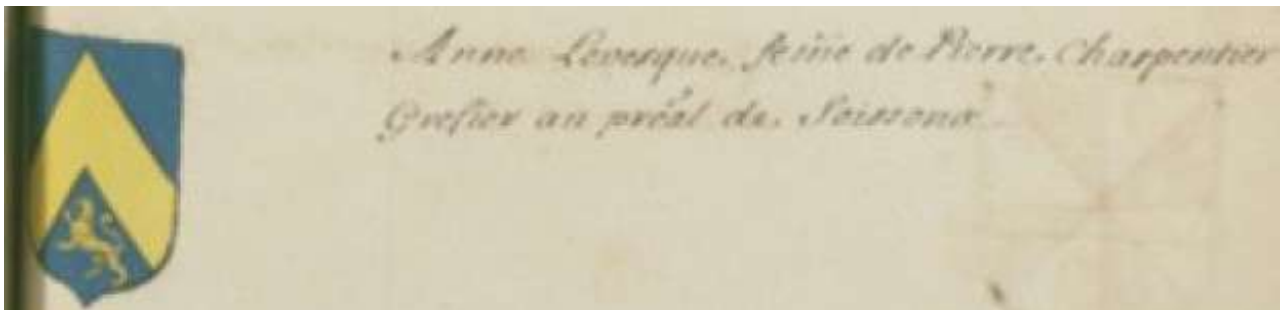 Anne Levesque, fem̄e de Pierre Charpentier
Grefier au préal de Soissons